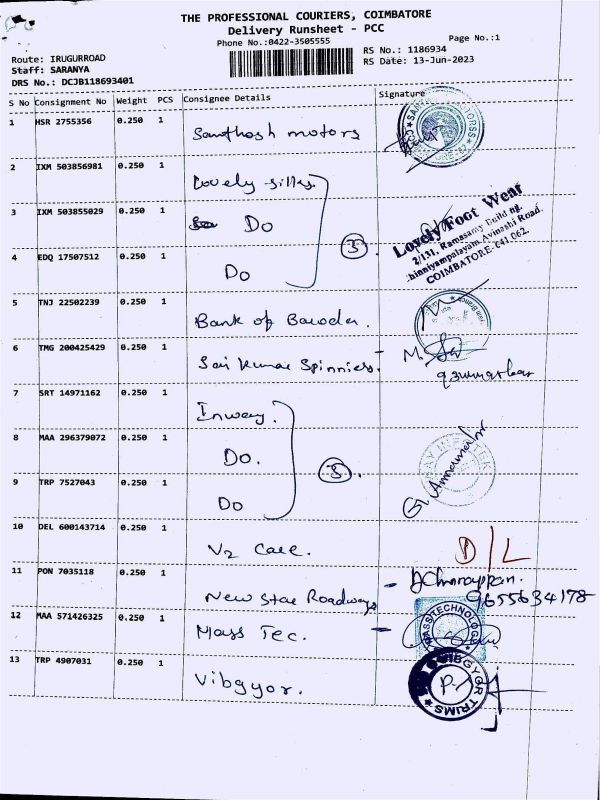 THE PROFESSIONAL COURIERS, COIMBATORE
Delivery Runsheet - PCC
Phone No.:0422-3505555
Page No.:1
Route: IRUGURROAD
Staff: SARANYA
DRS No.: DCJB118693401
RS No.: 1186934
RS Date: 13-Jun-2023
S No Consignment No Weight PCS Consignee Details Signature
1 HSR 2755356 0.250 1 Santhosh motors
2 IXM 503856981 0.250 1 Lovely silks.
3 IXM 503855029 0.250 1 Do
4 EDQ 17507512 0.250 1 Do
3
Lovely Foot Wear
2/131, Ramasamy Build ng,
hinniyampalayam, Avinashi Road.
COIMBATORE-641 062.
5 TNJ 22502239 0.250 1 Bank of Baroda.
6 TMG 200425429 0.250 1 Sai Kumar Spinniers. -
7 SRT 14971162 0.250 1 Inway.
8 MAA 296379072 0.250 1 Do.
9 TRP 7527043 0.250 1 Do
3
10 DEL 600143714 0.250 1 V2 Care. D/L
11 PON 7035118 0.250 1 New Star Roadways -
9655634178
12 MAA 571426325 0.250 1 Mass Tec. -
MASS TECHNOLOG
13 TRP 4907031 0.250 1 Vibgyor.
VIBGYOR TRIMS